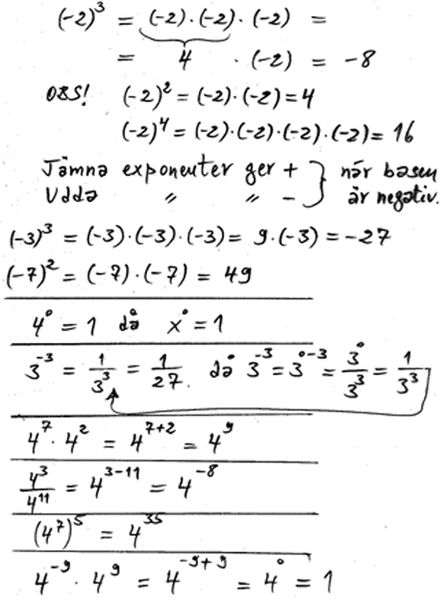 (-2)³ = (-2)·(-2)·(-2) =
= 4 · (-2) = -8
OBS! (-2)² = (-2)·(-2) = 4
(-2)⁴ = (-2)·(-2)·(-2)·(-2) = 16
Jämna exponenter ger + } när basen
Udda " " - } är negativ.
(-3)³ = (-3)·(-3)·(-3) = 9·(-3) = -27
(-7)² = (-7)·(-7) = 49
4⁰ = 1 då x⁰ = 1
3⁻³ = 1/3³ = 1/27. då 3⁻³ = 3⁰⁻³ = 3⁰/3³ = 1/3³
4⁷ · 4² = 4⁷⁺² = 4⁹
4³/4¹¹ = 4³⁻¹¹ = 4⁻⁸
(4⁷)⁵ = 4³⁵
4⁻⁹ · 4⁹ = 4⁻⁹⁺⁹ = 4⁰ = 1